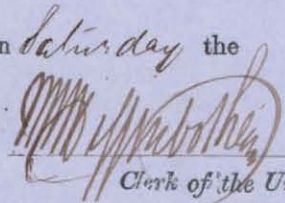 n Saturday the
Clerk of the U